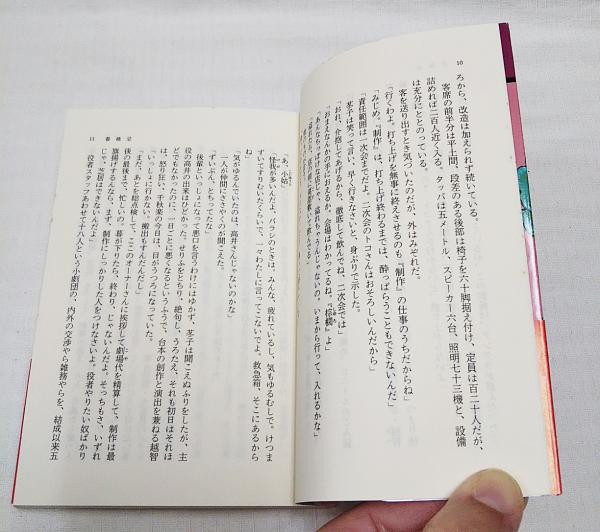 10
ろから、改造は加えられず続いている。
客席の前半分は平土間、段差のある後部は椅子を六十脚据え付け、定員は百二十人だが、
詰めれば二百人近く入る。タッパは五メートル、スピーカー六台、照明七十三機と、設備
は充分にととのっている。
客を送り出すとき気づいたのだが、外はみぞれだ。
「行くわよ。打ち上げを無事に終えさせるのも『制作』の仕事のうちだからね」
「みじめ。『制作』は、打ち上げ終わるまでは、酔っぱらうこともできないんだ」
「責任範囲は一次会までだよ。二次会のトコさんはおそろしいんだから」
茎子は笑って言い、早く行きなさいと、身ぶりで示した。
「おれ、介抱してあげるから、徹底して飲んでね、二次会では」
「おまえなんかの手におえるか。会場はわかってるね。『棕櫚』よ」
「あんなちっぽけな店じゃ、溢れちゃうんじゃないの。いまから行って、入れるかな」
11 春錆び
「あ、小姑」
「怪我が多いんだよ、バラシのときは。みんな、疲れているし、気もゆるむしで。けつま
ずいてすりむいたくらいで、一々わたしに言ってこないでよ。救急箱、そこにあるから
ね」
「気がゆるんでいたのは、高井さんじゃないのかな」
一人が仲間にささやくのが聞こえた。
「ずいぶん、とちってたな」
後輩といっしょになって悪口を言うわけにはゆかず、茎子は聞こえぬふりをしたが、主
役の高井の出来はひどかった。せりふをとちり、絶句し、うろたえ、それも初日はそれほ
どでもなかったのに、一日ごとに悪くなるというふうで、台本の創作と演出を兼ねる越智
は、怒り狂い、千秋楽の今日は、目がうつろになっていた。
「いっしょに行かない。搬出もすんだんだし」
「まだ、あとを総点検して、ここのオーナーさんに挨拶して劇場代を精算して、制作は最
後の最後まで、忙しいの。幕が下りたら、終わり、じゃないんだよ。そっちもさ、いずれ
旗揚げするんなら、まず、制作にしっかりした人をつけなさいよ。役者やりたい奴ばかり
じゃ、芝居はできないんだよ」
役者スタッフあわせて十八人という小劇団の、内外の交渉やら雑務やらを、結成以来五